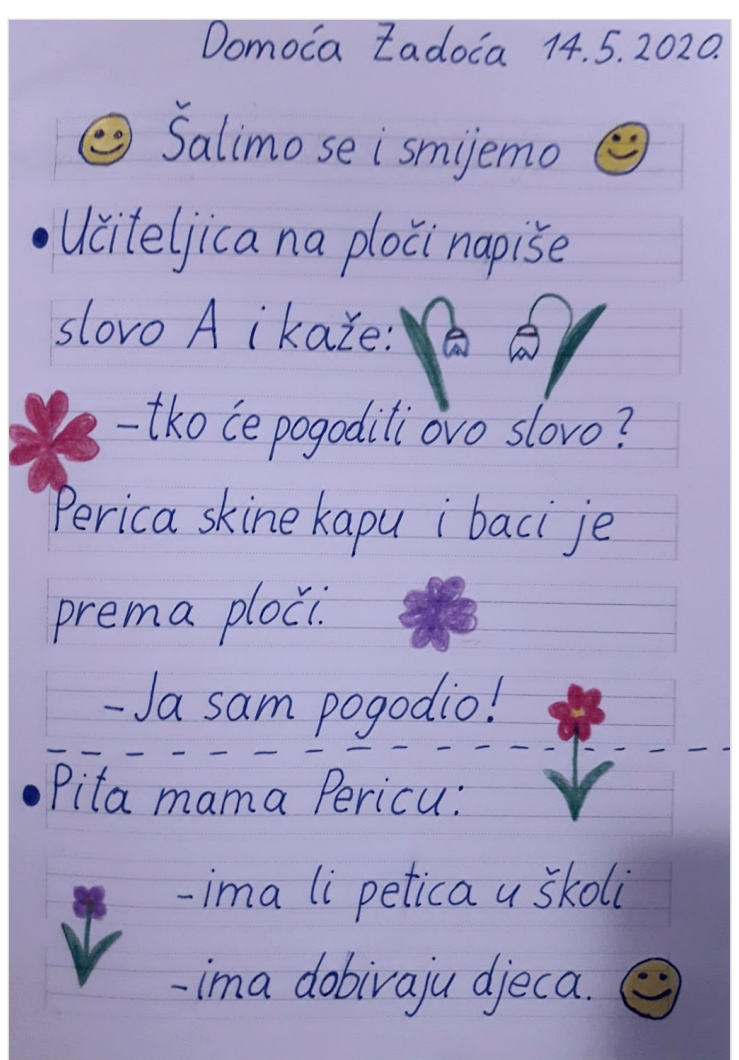 Domoća Zadoća 14.5.2020.
Šalimo se i smijemo
• Učiteljica na ploči napiše
slovo A i kaže:
-tko će pogoditi ovo slovo?
Perica skine kapu i baci je
prema ploči.
-Ja sam pogodio!
• Pita mama Pericu:
-ima li petica u školi
-ima dobivaju djeca.